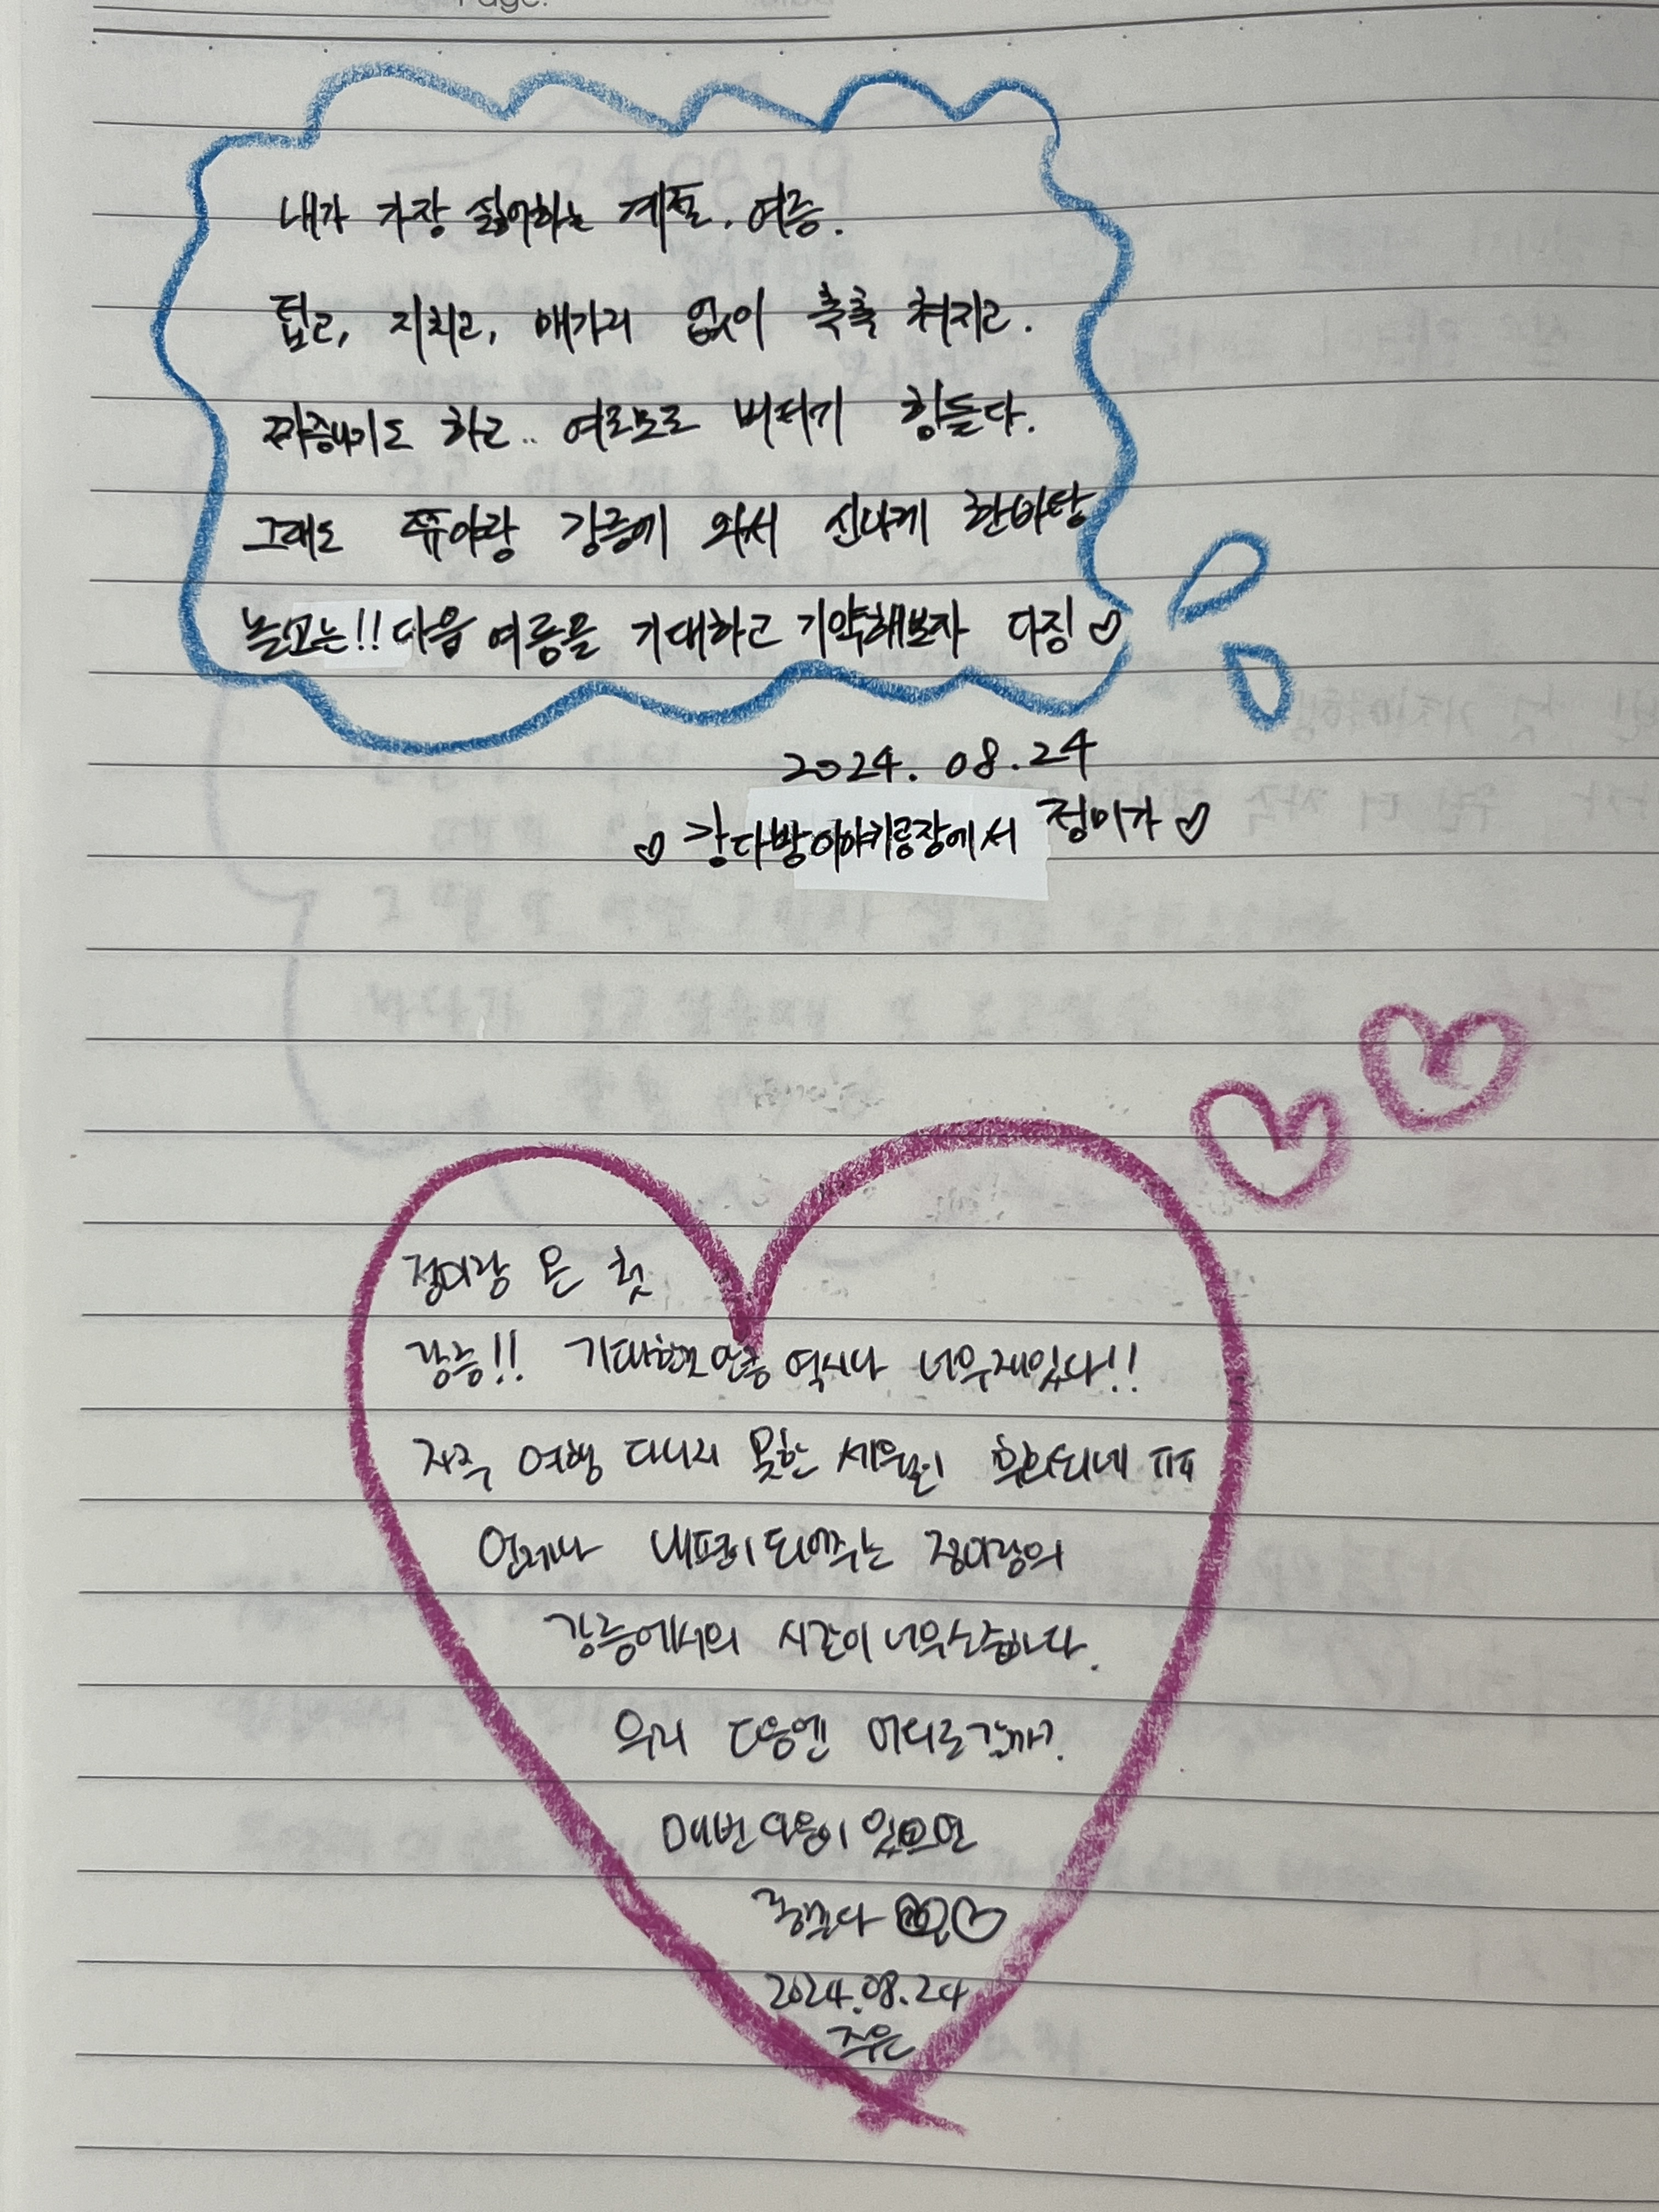 Page.
내가 가장 싫어하는 계절. 여름.
덥고, 지치고, 매가리 없이 축축 쳐지고.
짜증나기도 하고.. 여로모로 버티기 힘들다.
그래도 쮸야랑 강릉에 와서 신나게 한바탕
놀고는!! 다음 여름을 기대하고 기약해보자 다짐♡
2024. 08. 24
♡ 강다방이야기공장에서 정미가 ♡
정미랑 온 첫
강릉!! 기대했던 만큼 역시나 너무재있다!!
자주 여행 다니지 못한 세월이 후회되네 ㅠㅠ
언제나 내편이 되어주는 정미랑의
강릉에서의 시간이 너무소중하다.
우리 다음엔 어디로갈까?
매번 다음이 있으면
좋겠다 ♡
2024.08.24
주은